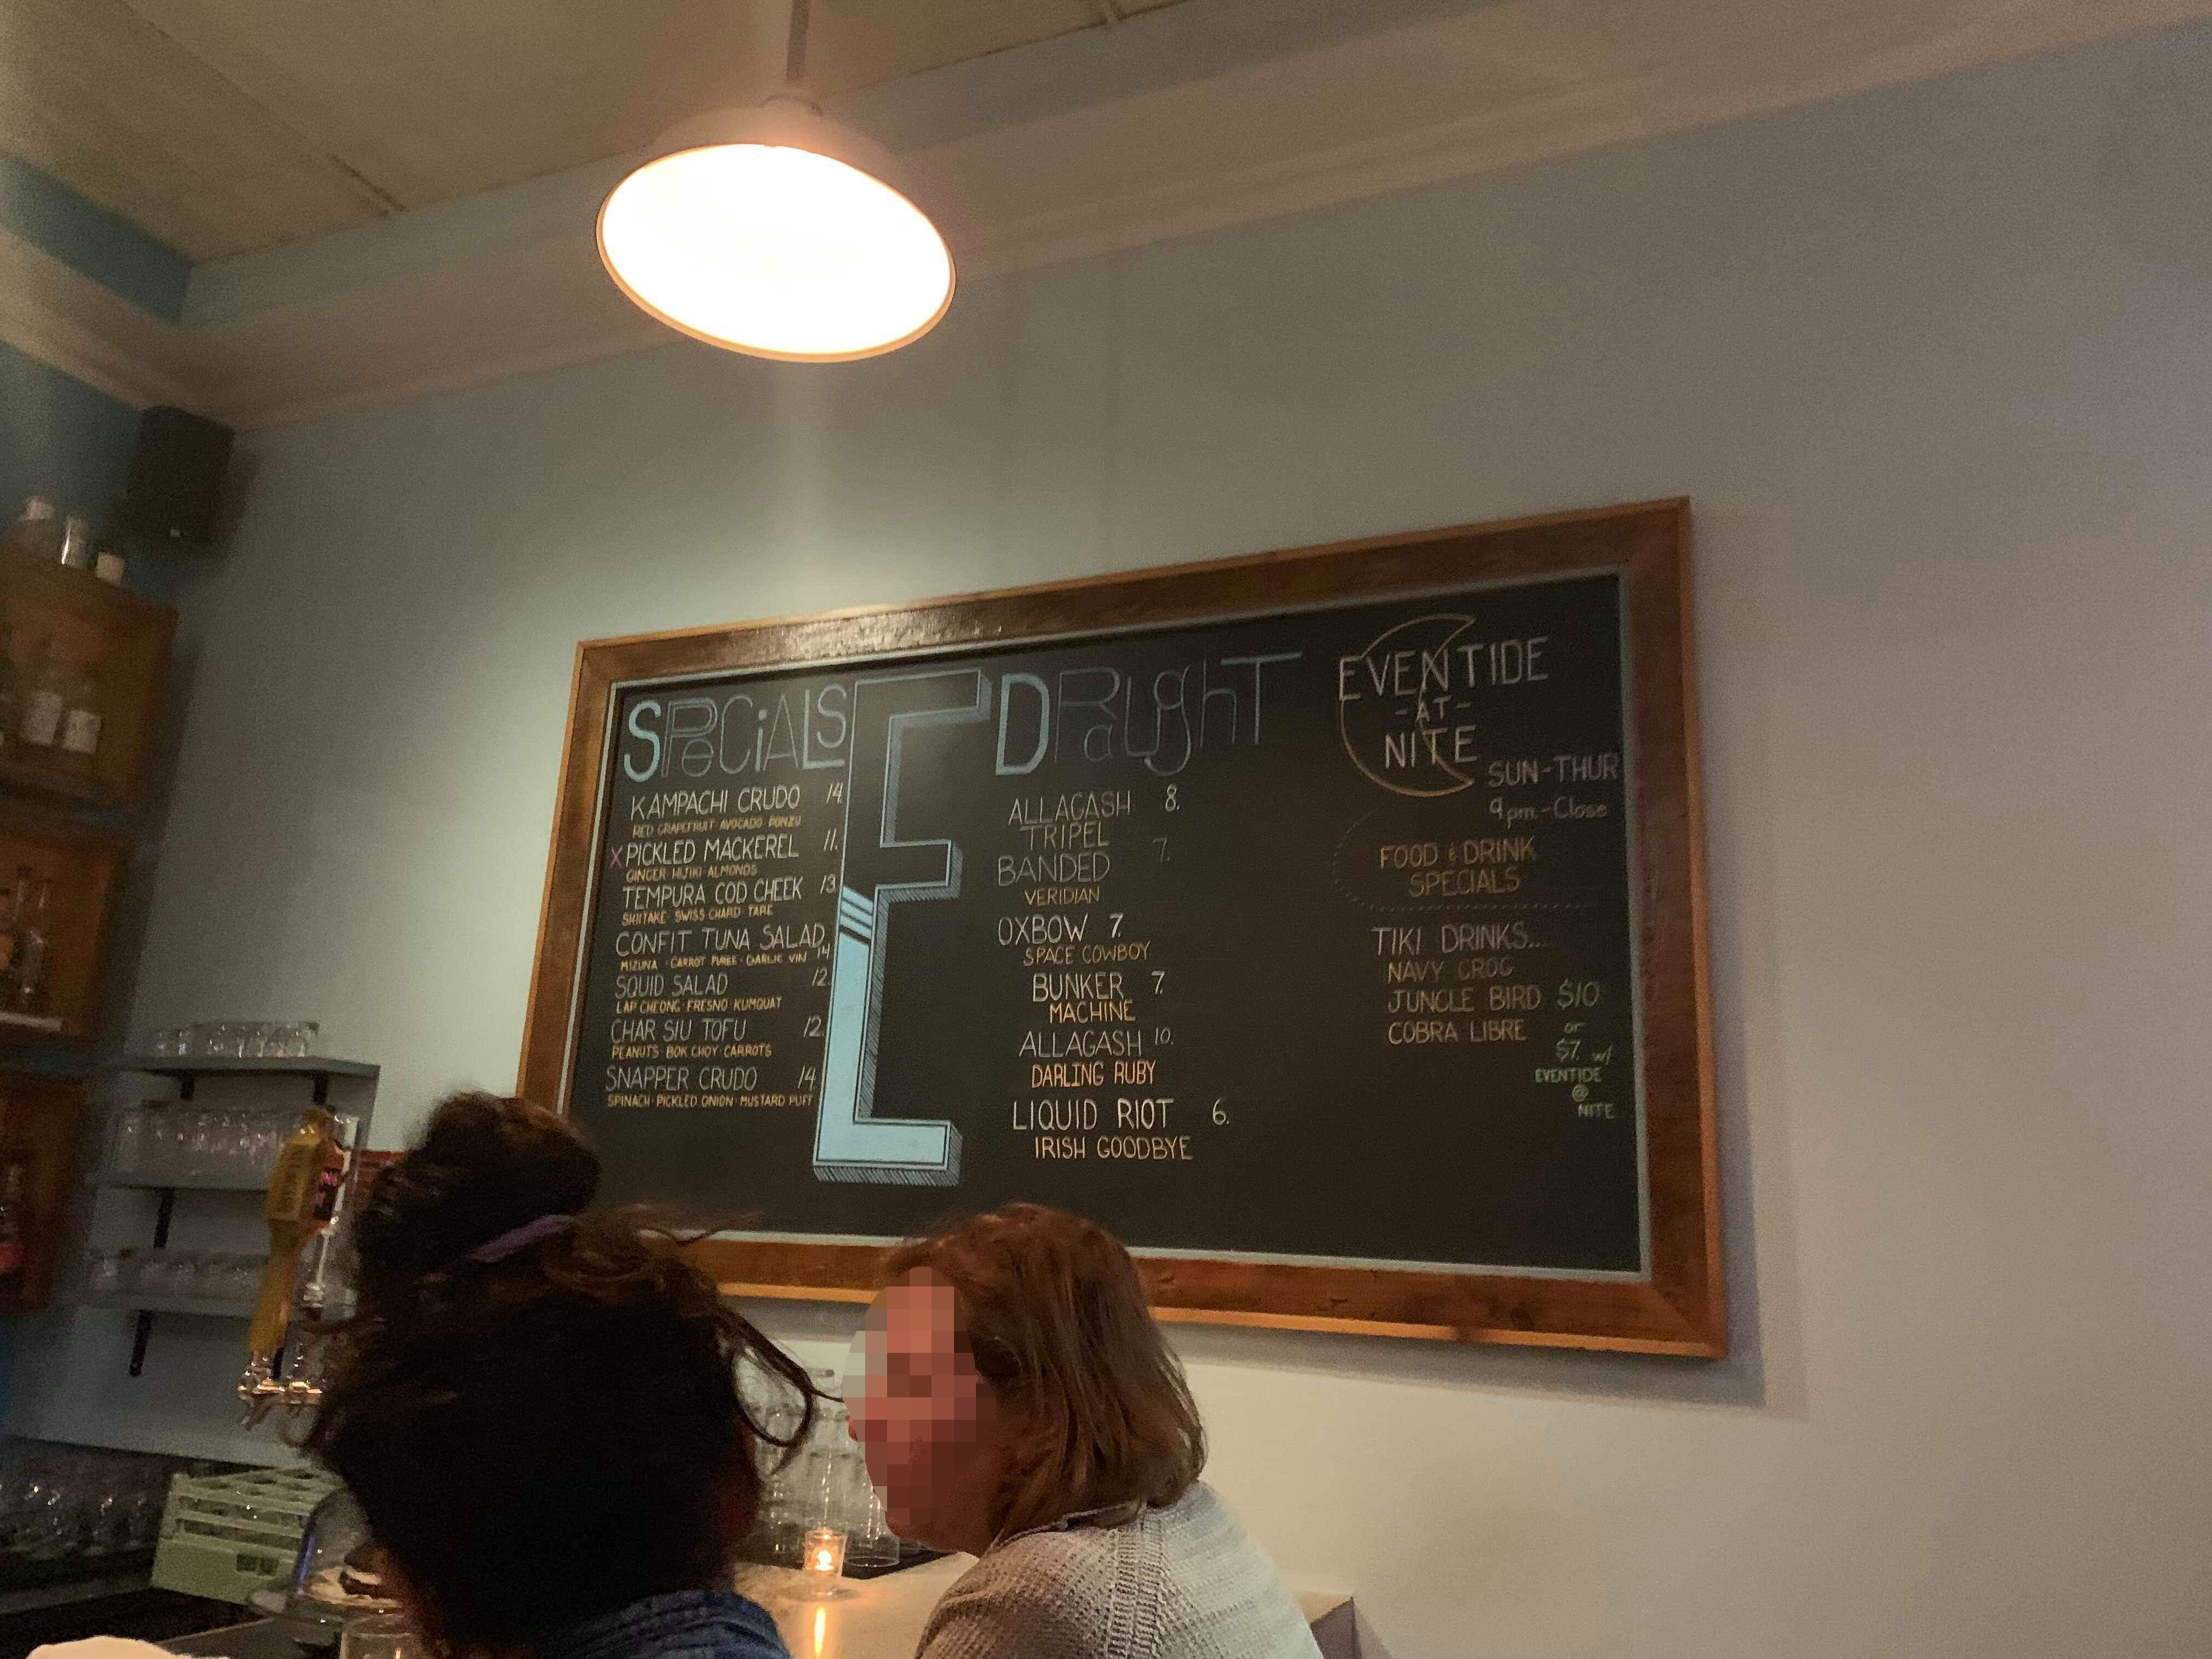 SPeCiALS
KAMPACHI CRUDO 14.
RED GRAPEFRUIT AVOCADO PONZU
X PICKLED MACKEREL 11.
GINGER HIJIKI ALMONDS
TEMPURA COD CHEEK 13.
SHIITAKE SWISS CHARD TARE
CONFIT TUNA SALAD 14
MIZUNA · CARROT PUREE · GARLIC VIN
SQUID SALAD 12.
LAP CHEONG · FRESNO · KUMQUAT
CHAR SIU TOFU 12.
PEANUTS · BOK CHOY · CARROTS
SNAPPER CRUDO 14
SPINACH · PICKLED ONION · MUSTARD PUFF
E
DRaUghT
ALLAGASH 8.
TRIPEL
BANDED 7.
VERIDIAN
OXBOW 7.
SPACE COWBOY
BUNKER 7.
MACHINE
ALLAGASH 10.
DARLING RUBY
LIQUID RIOT 6.
IRISH GOODBYE
EVENTIDE
-AT-
NITE
SUN-THUR
9pm-Close
FOOD & DRINK
SPECIALS
TIKI DRINKS....
NAVY GROG
JUNGLE BIRD $10
COBRA LIBRE or
$7. w/
EVENTIDE
@
NITE